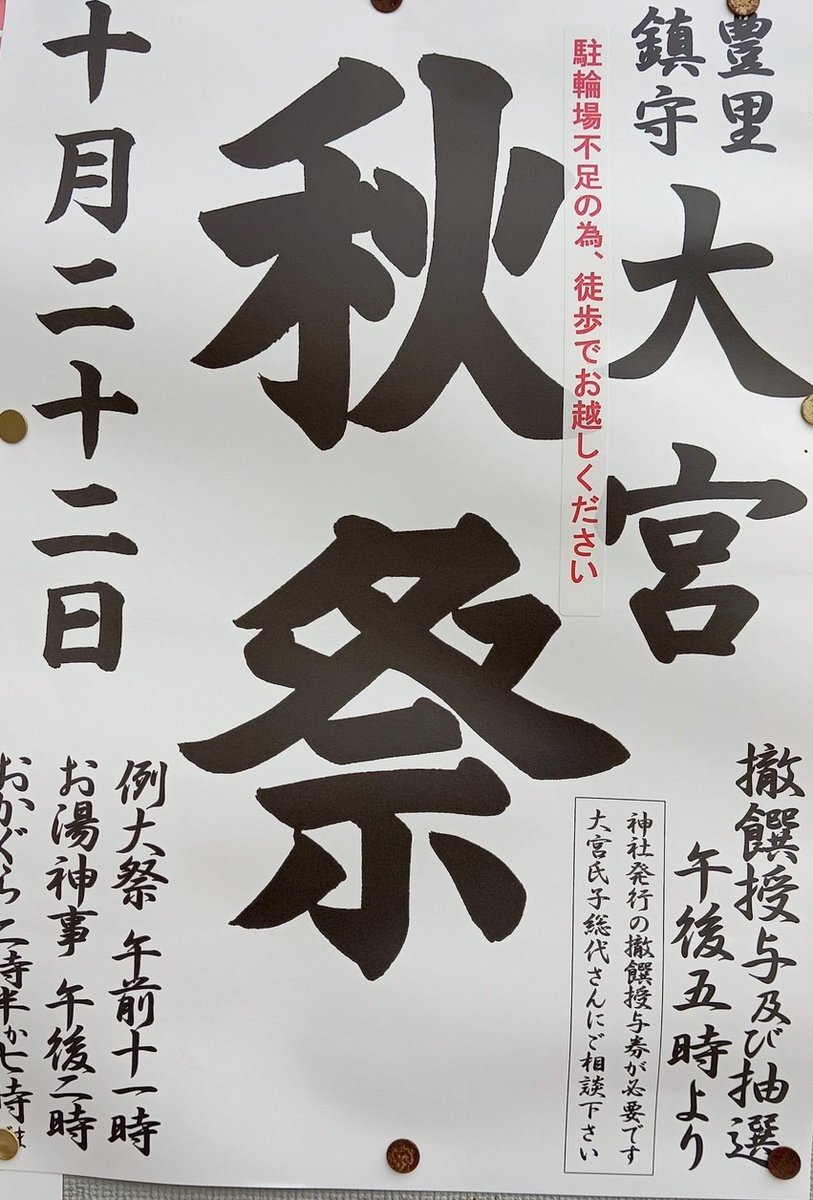 豊里
鎮守
大宮
駐輪場不足の為、徒歩でお越しください
秋祭
十月二十二日
撤饌授与及び抽選
午後五時より
神社発行の撤饌授与券が必要です
大宮氏子総代さんにご相談下さい
例大祭 午前十一時
お湯神事 午後二時
おかぐら 二時半か七時